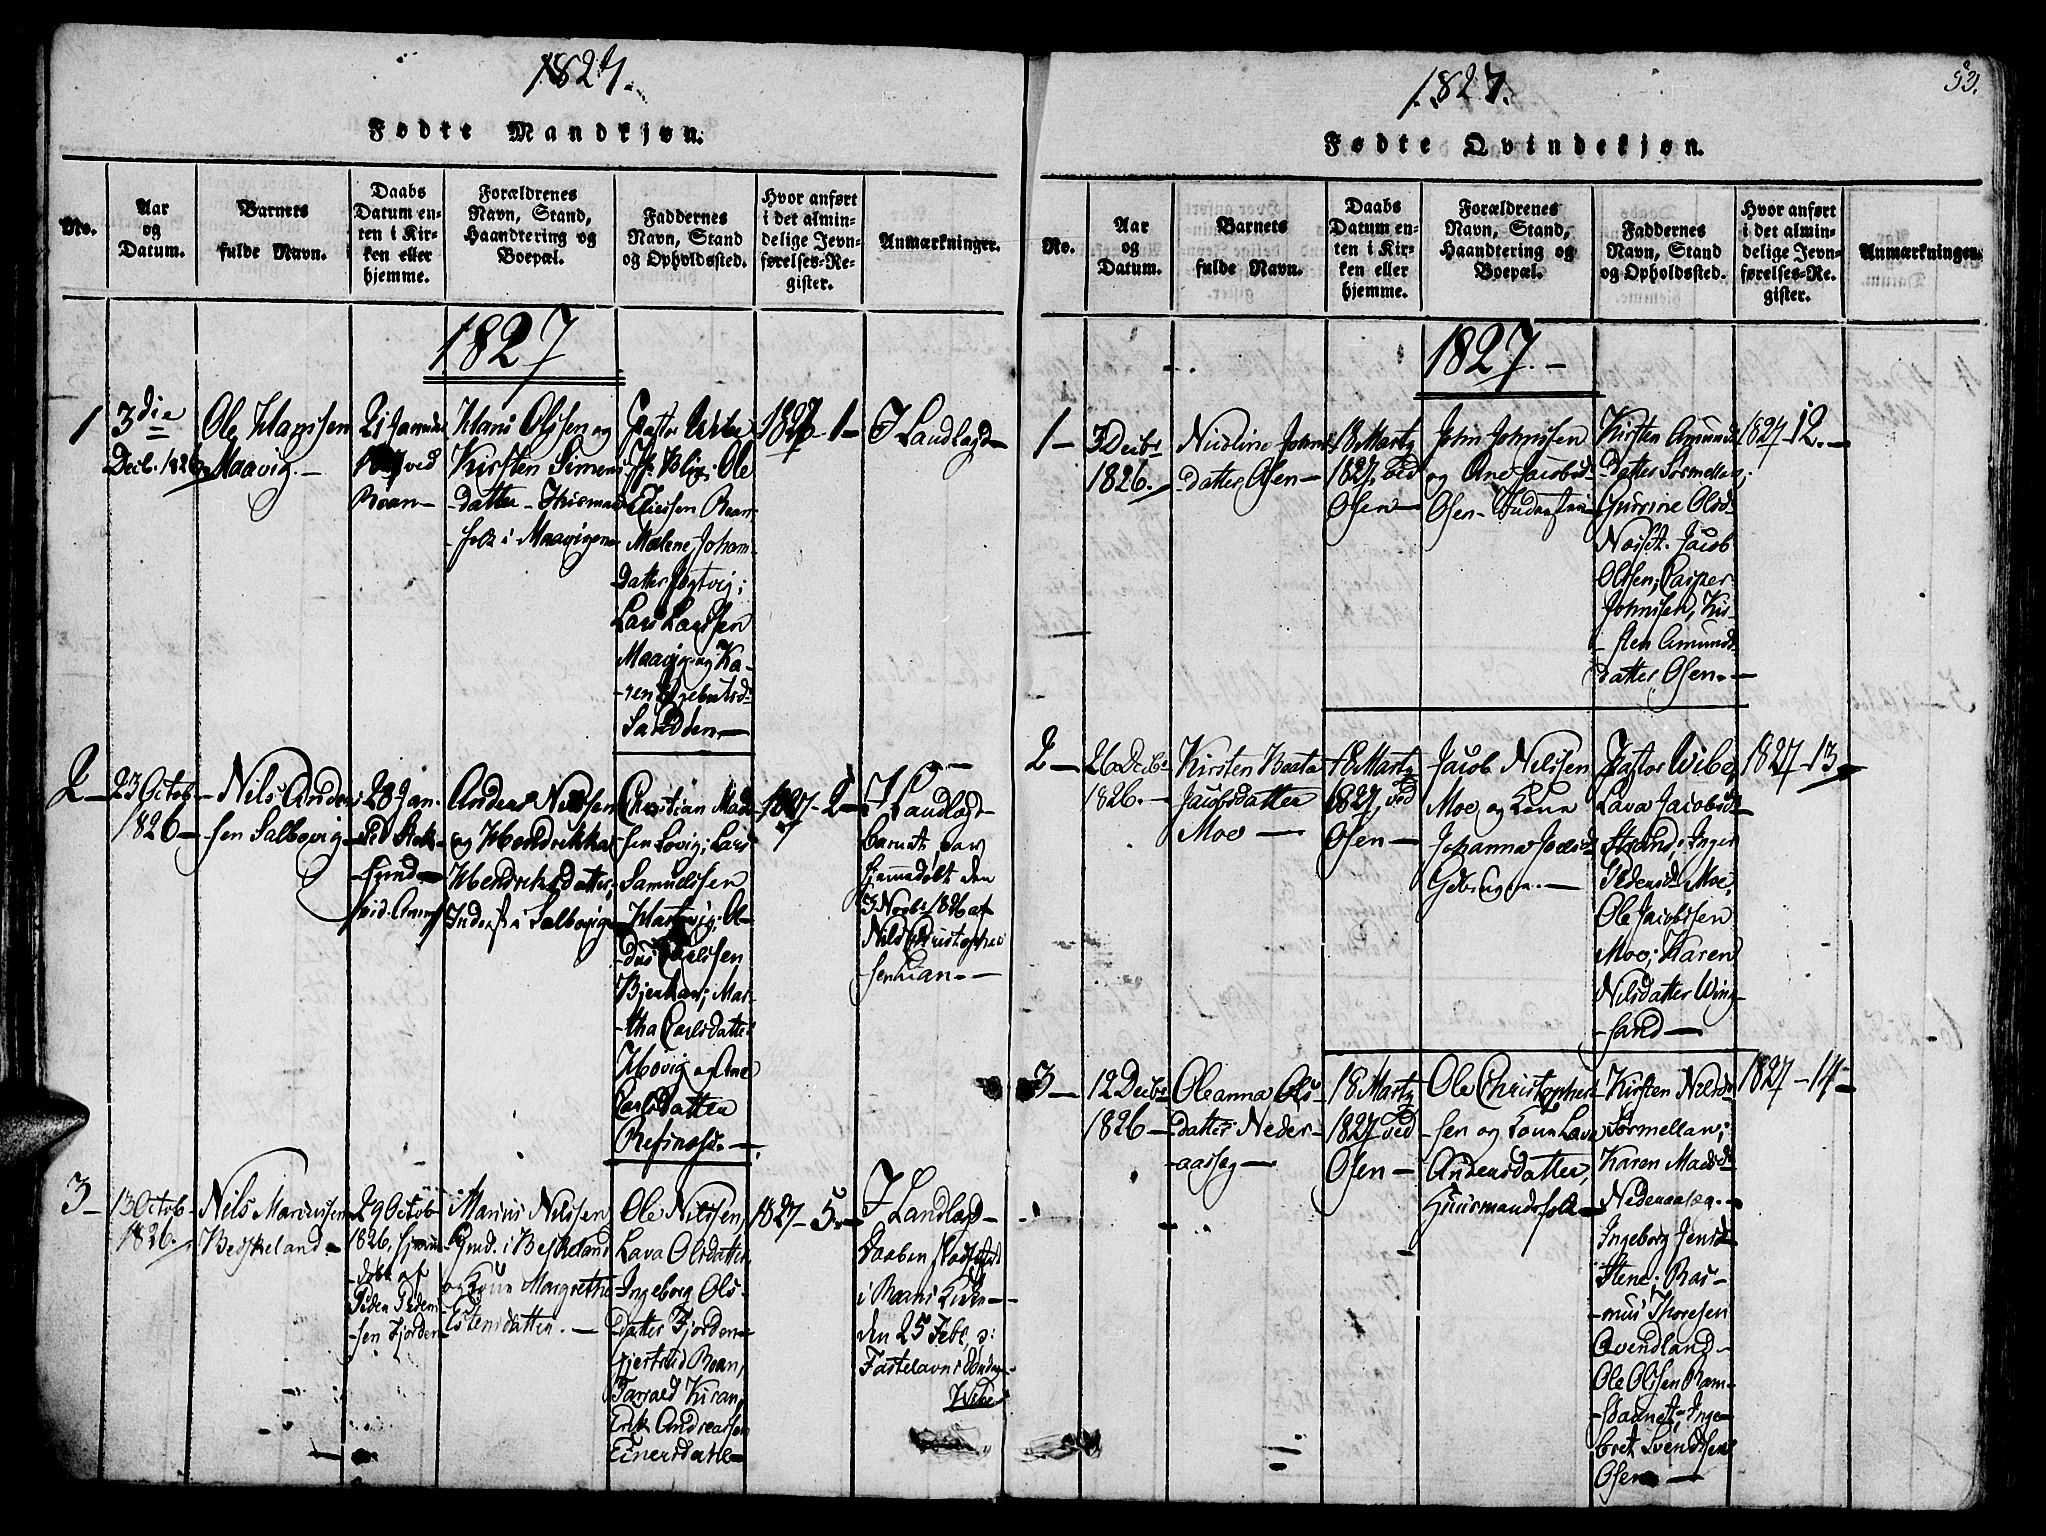 1827.
Fødte Mandkjøn.
No.
Aar
og
Datum.
Barnets
fulde Navn.
Daabs
Datum en-
ten i Kir-
ken eller
hjemme.
Forældrenes
Navn, Stand,
Haandtering og
Boepæl.
Faddernes
Navn, Stand
og Opholdssted.
Hvor anført
i det almin-
delige Jevn-
førelses-Re-
gister.
Anmærkninger.
1827
1
3die
Decb. 1826
Ole Hanssen
Maavig.
21 Januar
1827 ved
Roan
Hans Olssen og
Kirsten Simens
datter
folk i Maavigen
Pastor Wibe
Ole
Eliessen Roan
Malene Johan-
datter
Lars Larssen
Maavig og Ka-
ren
Sandden
1827 1
I Laudlagd
2
23 Octob
1826
Nils Anders
sen Salbovig
28 Jan.
ved Stok-
sund
Anders Nilssen
og Hendrikka
Hendriksdatter,
Inderst i Salbovig
Christian Mads
sen Lovig; Lars
Samuelssen
Hartvig; Ol-
dus Carlssen
Bjenhav; Mar-
tha Carlsdatter
Hovig og Ane
Carlsdatter
Refsnæs
1827 - 2
I Laudlagd
Barnet var
hjemmedøbt den
3 Novbr 1826 af
Nils Christopher
sen Lian
3
13 Octob
1826
Nils Mariussen
Beskeland
29 Octob
1826, hjem-
døbt af
Peder Peder-
sen Fjorden
Marius Nilssen
Gmd. i Beskeland
og Margrethe
Estensdatter.
Ole Nilssen,
Lava Olsdatter,
Ingeborg Ols-
datter Fjorden
Gjertrud Roan,
Tarald Kiran,
Erik Andreassen
Einersdahl
1827 - 5
I Landlagd
Daaben stadfæstet
i Roans Kirke
den 25 Febr, o:
Fastelavns Søndag
Wibe
1827.
53.
Fødte Qvindekjøn.
No.
Aar
og
Datum.
Barnets
fulde Navn.
Daabs
Datum en-
ten i Kir-
ken eller
hjemme.
Forældrenes
Navn, Stand,
Haandtering og
Boepæl.
Faddernes
Navn, Stand
og Opholdssted.
Hvor anført
i det almin-
delige Jevn-
førelses-Re-
gister.
Anmærkninger.
1827.
1
3 Decbr
1826.
Nicoline Johns
datter Osen
18 Marty
1827 ved
Osen
John Johnssen
og Ane Jacobsd
Osen
Kirsten Amunds
datter Sørmelland;
Gurine Olsd
Jacob
Olssen, Casper
Johnssen, Kir-
sten Amunds
datter Osen.
1827-12.
2
26 Decbr
1826.
Kirsten Beata
Jacobsdatter
Moe
18 Marty
1827 ved
Osen
Jacob Nilssen
Moe og Lena
Johanna
Pastor Wibe
Lava Jacobsd
Strand; Inger
Pedersd Moe,
Ole Jacobssen
Moe; Karen
Nilsdatter Wing-
sand
1827-13
3
12 Decbr
1826
Oleanna Ols-
datter Neder-
aasseg
18 Marty
1827 ved
Osen
Ole Christopher-
sen og Lava
Andersdatter,
Huusmandsfolk
Kirsten Nilsd
Sørmelland;
Karen Madsd
Nederaaseg.
Ingeborg Jensd
Stene; Ras-
mus Thoresen
Qvendland
Ole Olssen Ram-
Inge-
bret Svendsen
Osen
1827 - 14